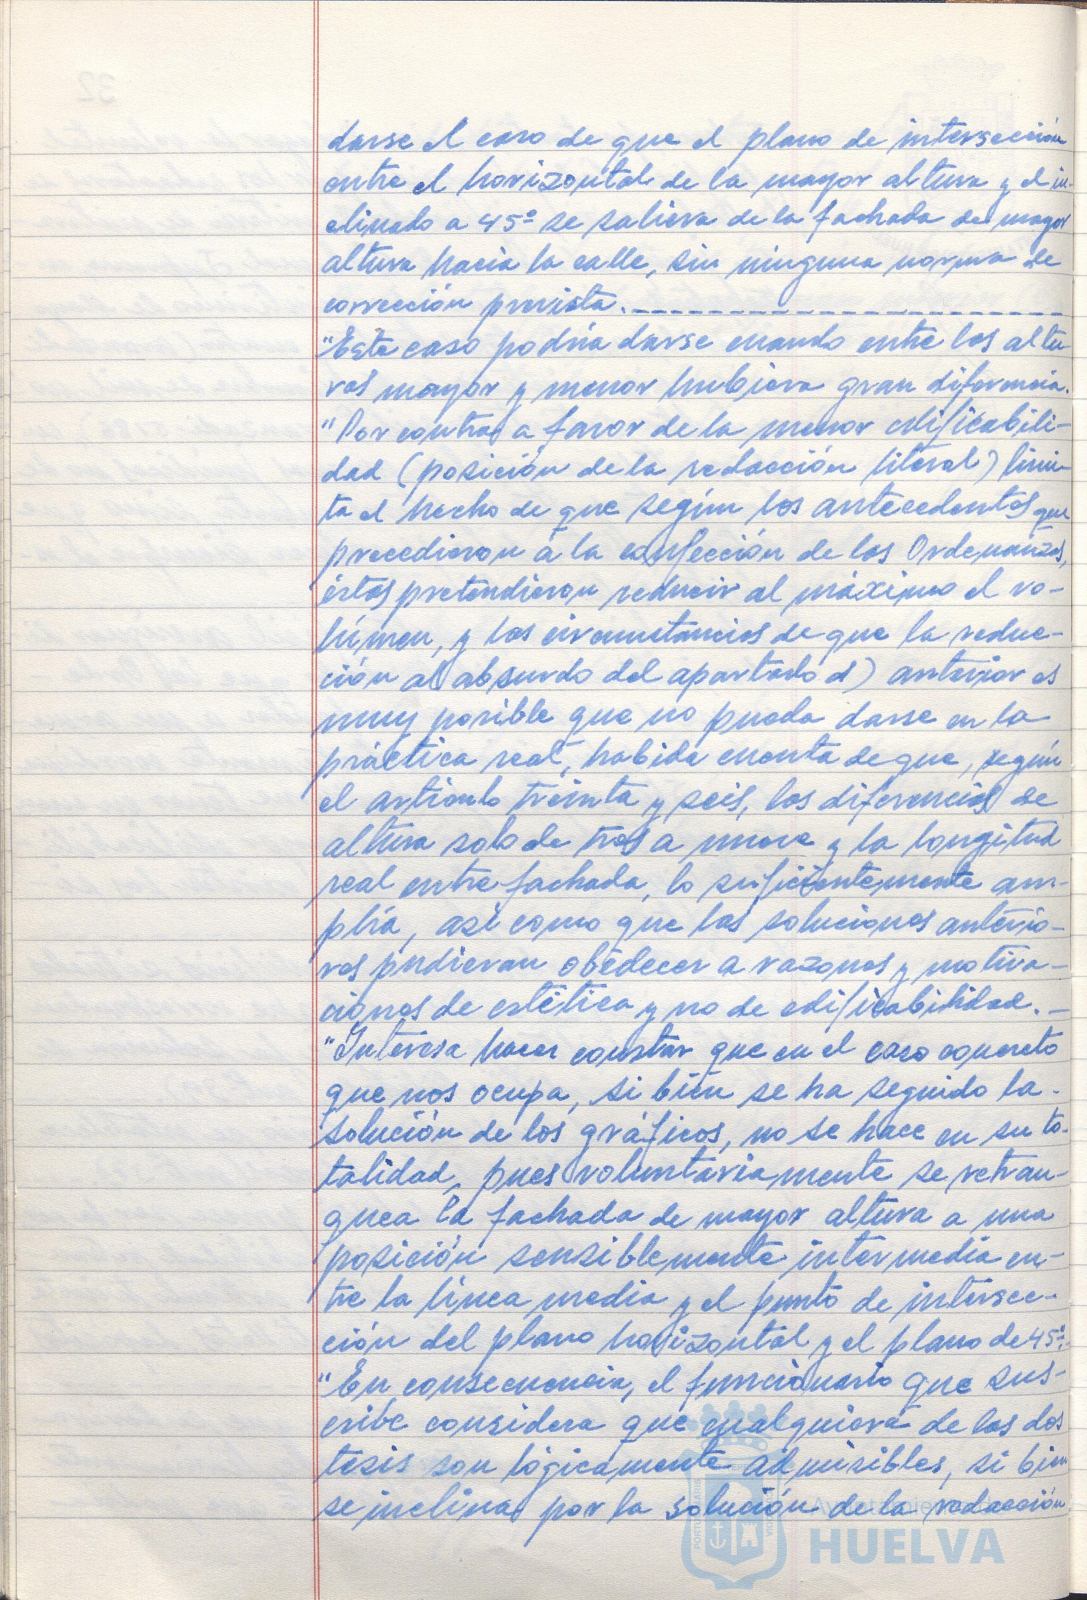 darse el caso de que el plano de intersección
entre el horizontal de la mayor altura y el in-
clinado a 45º se saliera de la fachada de mayor
altura hacia la calle, sin ninguna norma de
corrección prevista.
"Este caso podría darse cuando entre las altu-
ras mayor y menor hubiera gran diferencia.
"Por contra, a favor de la menor edificabili-
dad (posición de la redacción literal) limi-
ta el hecho de que según los antecedentes que
precedieron a la confección de las Ordenanzas,
éstas pretendieron reducir al máximo el vo-
lúmen, y las circunstancias de que la reduc-
ción al absurdo del apartado d) anterior es
muy posible que no pueda darse en la
práctica real, habida cuenta de que, según
el artículo treinta y seis, las diferencias de
altura solo de tres a nueve y la longitud
real entre fachada, lo suficientemente am-
plia, así como que las soluciones anterio-
res pudieran obedecer a razones y motiva-
ciones de estética y no de edificabilidad.-
"Interesa hacer constar que en el caso concreto
que nos ocupa, si bién se ha seguido la
solución de los gráficos, no se hace en su to-
talidad, pues voluntariamente se retran-
quea la fachada de mayor altura a una
posición sensiblemente intermedia en-
tre la línea media y el punto de intersec-
ción del plano horizontal y el plano de 45º.-
"En consecuencia, el funcionario que sus-
cribe considera que cualquiera de las dos
tesis son lógicamente admisibles, si bien
se inclina por la solución de la redacción
Ayuntamiento de
HUELVA